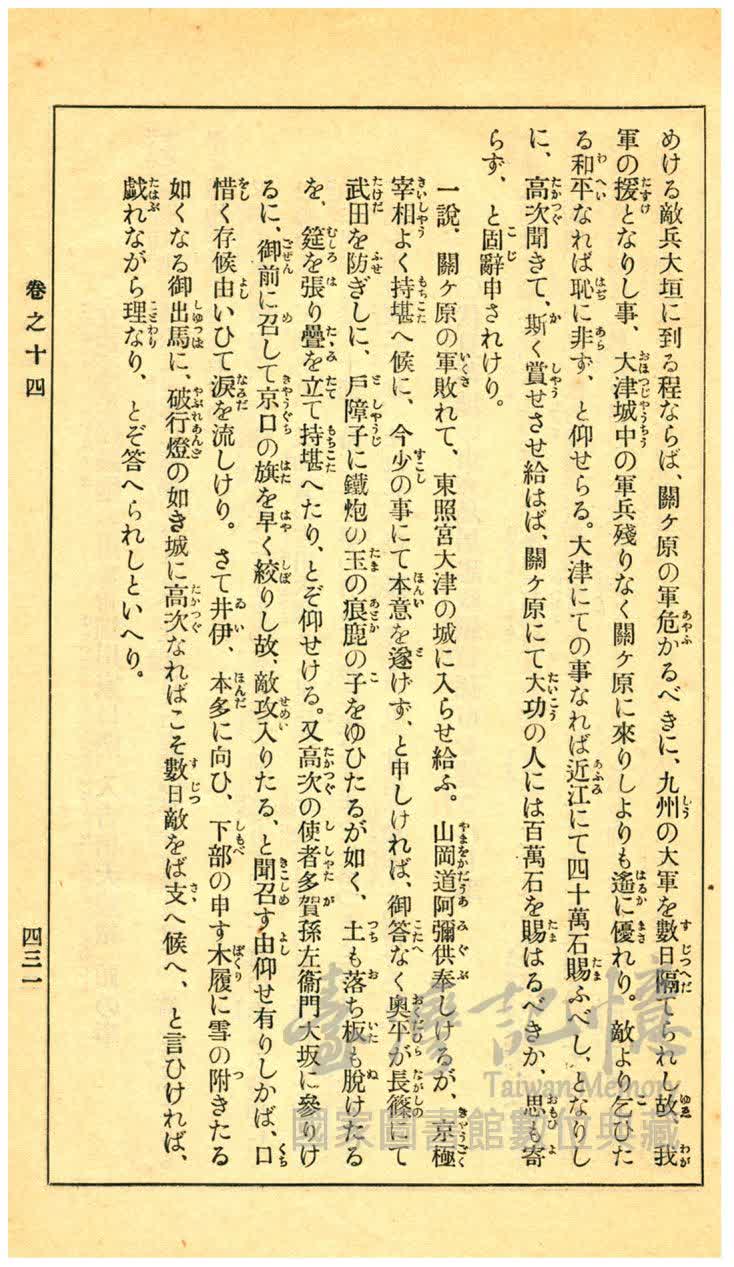 めける敵兵大垣に到る程ならば、關ヶ原の軍危かるべきに、九州の大軍を數日隔てられし故、我
軍の援となりし事、大津城中の軍兵殘りなく關ヶ原に來りしよりも遙に優れり。敵より乞ひた
る和平なれば恥に非ず、と仰せらる。大津にての事なれば近江にて四十萬石賜ふべし、となりし
に、高次聞きて、斯く賞せさせ給はば、關ヶ原にて大功の人には百萬石を賜はるべきか、思も寄
らず、と固辭申されけり。
一說、關ヶ原の軍敗れて、東照宮大津の城に入らせ給ふ。山岡道阿彌供奉しけるが、京極
宰相よく持堪へ候に、今少の事にて本意を遂げず、と申しければ、御答なく奥平が長篠にて
武田を防ぎしに、戶障子に鐵炮の玉の痕鹿の子をゆひたるが如く、土も落ち板も脫けたる
を、筵を張り疊を立て持堪へたり、とぞ仰せける。又高次の使者多賀孫左衞門大坂に參りけ
るに、御前に召して京口の旗を早く絞りし故、敵攻入りたる、と聞召す由仰せ有りしかば、口
惜く存候由いひて淚を流しけり。さて井伊、本多に向ひ、下部の申す木履に雪の附きたる
如くなる御出馬に、破行燈の如き城に高次なればこそ數日敵をば支へ候へ、と言ひければ、
戯れながら理なり、とぞ答へられしといへり。
卷之十四
四三一
臺灣記憶
Taiwan Memory
國家圖書館數位典藏